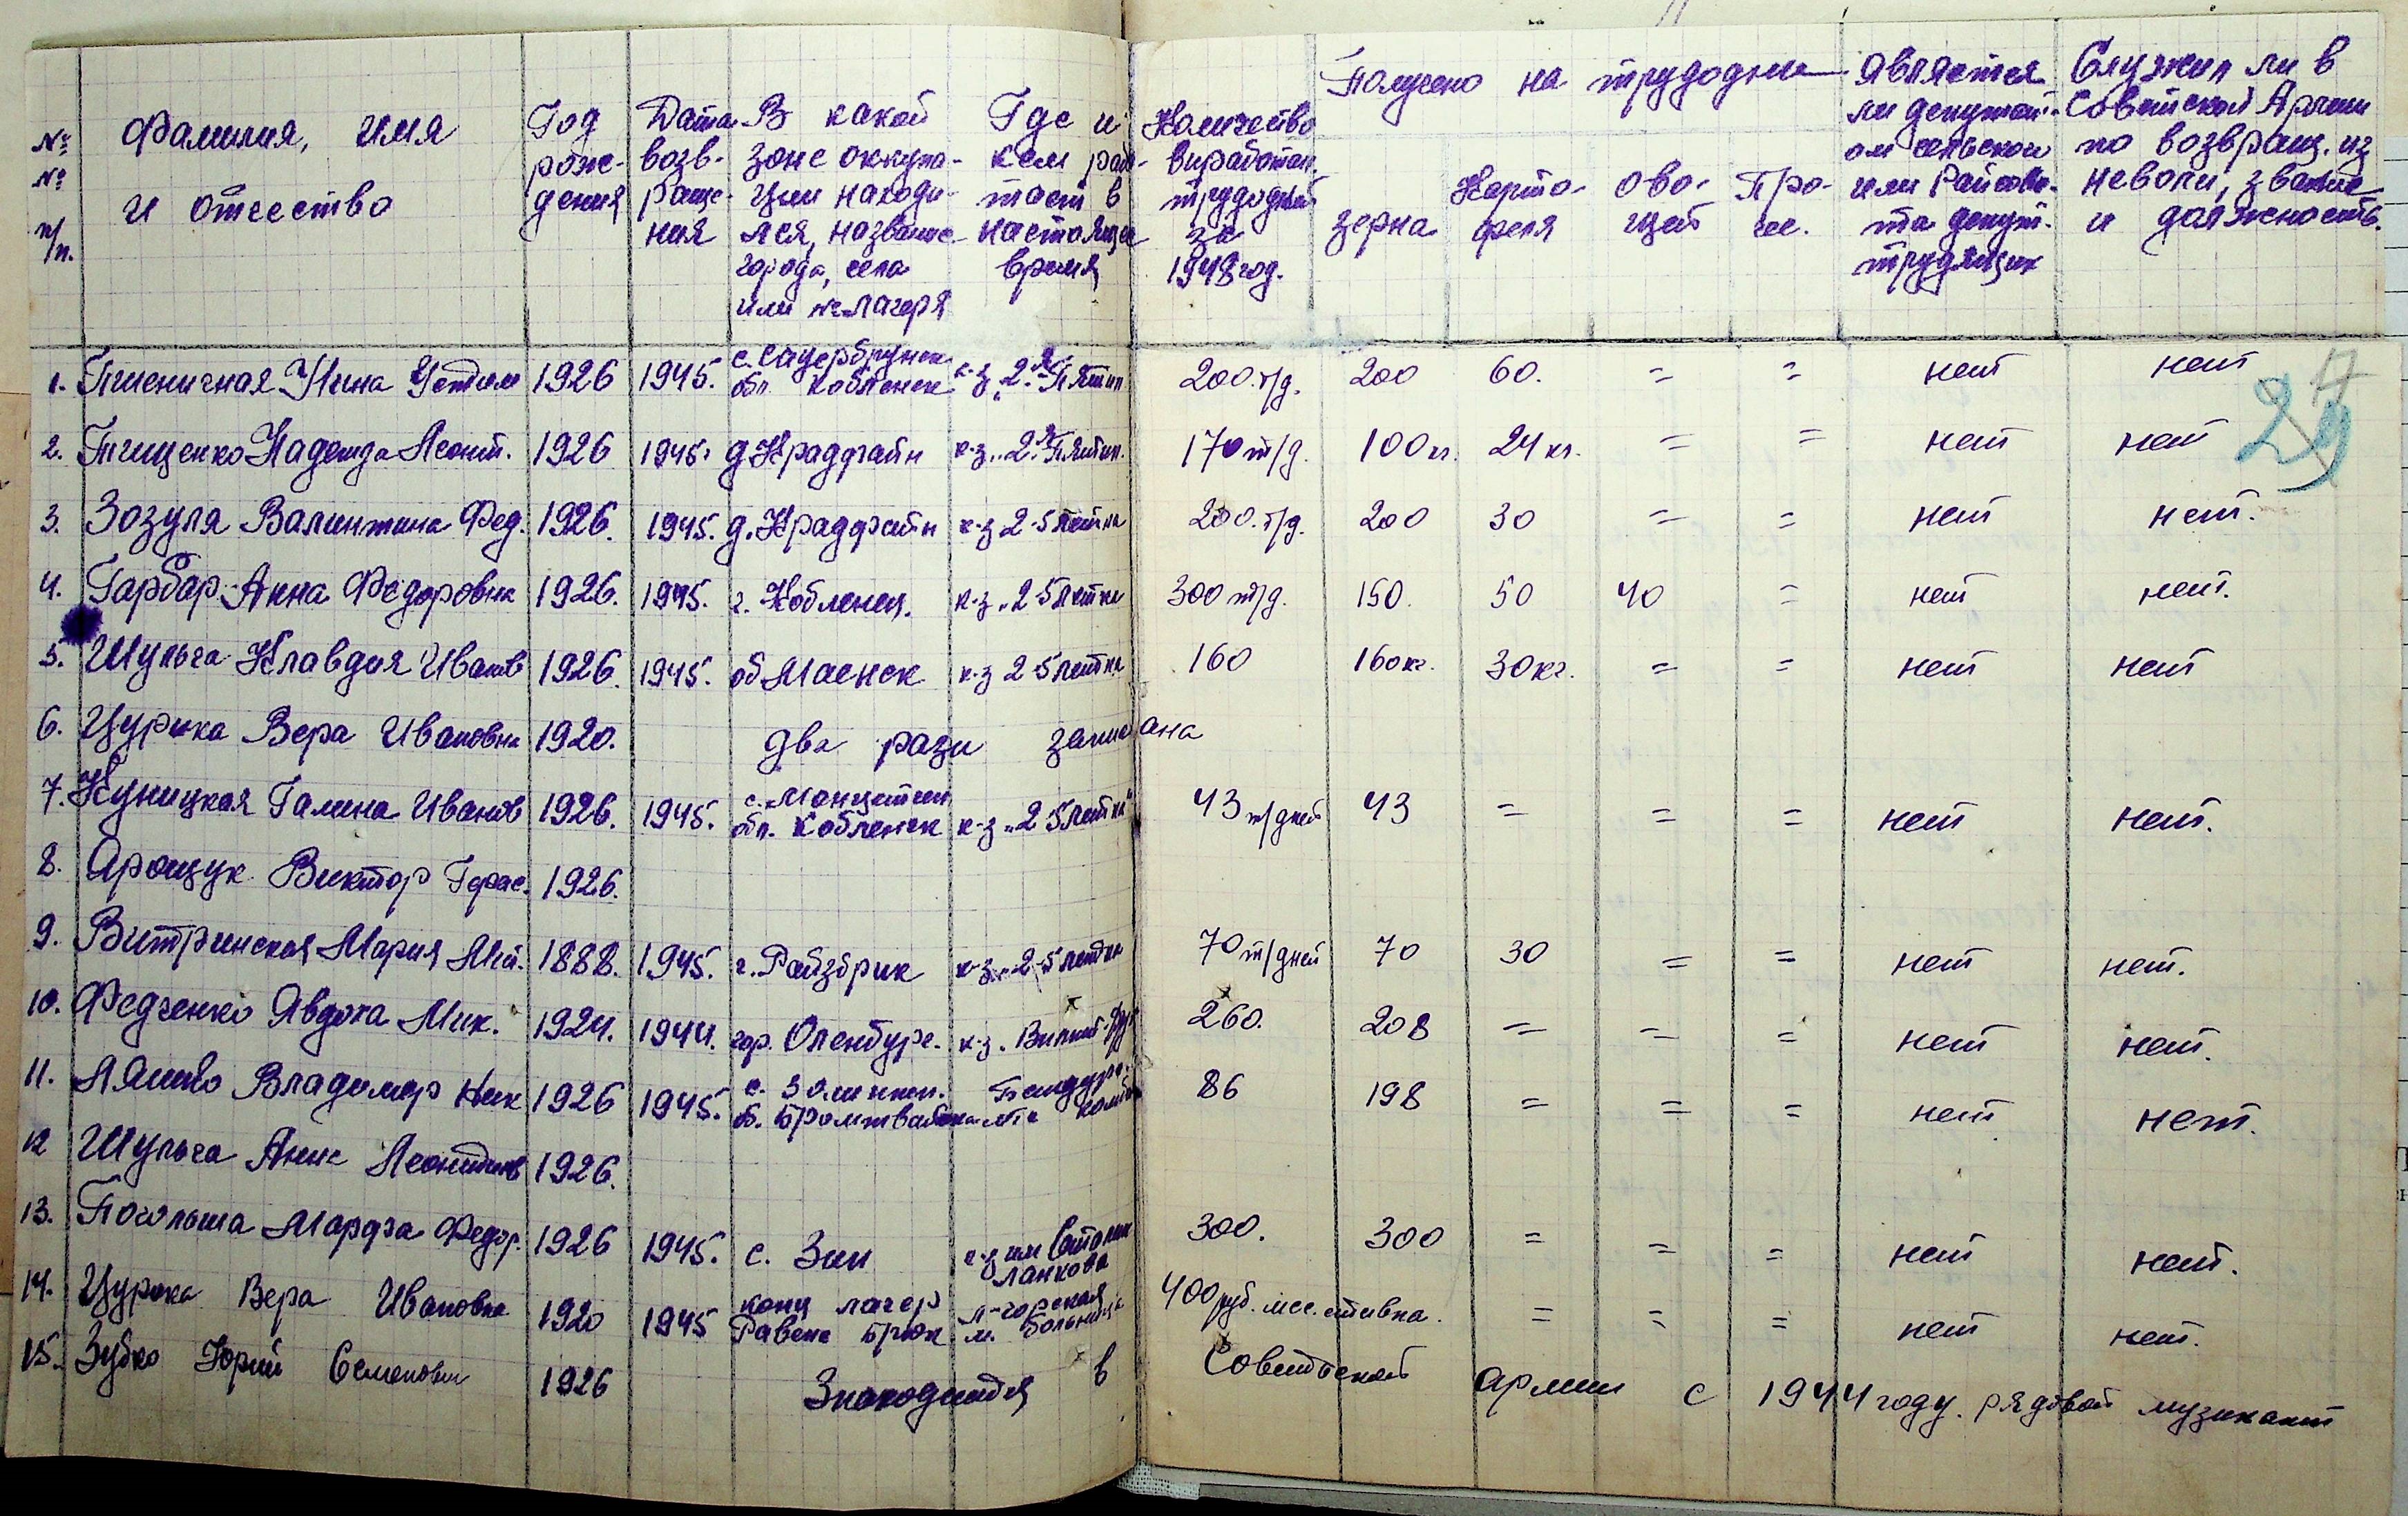 № № п/п.
Фамилия, имя и отчество
Год рождения
Дата возвращения
В какой зоне оккупации находился, название города, села или № лагеря
Где и кем работает в настоящее время
Количество виработан. трудодней за 1948 год.
Получено на трудодни
зерна
Картофеля
овощей
Прочее.
Является ли депутатом сельского или Райсовета депут. трудящих
Служил ли в Советской Армии по возвращ. из неволи, звание и должность.
29
1. Пшеничная Нина 1926 1945. с. Сауербрунен обл. Кобленск к-з „2-я Пятил. 200 т/д. 200 60. = = нет нет
2. Тищенко Надежда Леонт. 1926 1945. д. Крадфайн к-з „2-я Пятил. 170 т/д. 100 кг. 24 кг. = = нет нет
3. Зозуля Валинтина Фед. 1926. 1945. д. Крадфайн к-з 2-5 летка 200 т/д. 200 30 = = нет нет.
4. Гарбар Анна Федоровна 1926. 1945. г. Кобленц. к-з „2-5 летка 300 т/д. 150. 50 40 = нет нет.
5. Шульга Клавдия Иванов 1926. 1945. об Маенск к-з 2-5 летка 160 160 кг. 30 кг. = = нет нет
6. Цурика Вера Ивановна 1920. два рази записана
7. Куницкая Галина Иванов 1926. 1945. с. обл. Кобленск к-з „2 5 летка" 43 т/дней 43 = = = нет нет.
8. Ярощук Виктор Герас. 1926.
9. Витринская Мария 1888. 1945. г. Райзбрик к-з „2-5 летка 70 т/дней 70 30 = = нет нет.
10. Федченко Явдоха Мик. 1924. 1944. гор. Оленбург. к-з. 260. 208 = = = нет нет.
11. Ляшко Владимер Ник 1926 1945. с. 86 198 = = = нет нет.
12 Шульга Анна Леонтиев 1926.
13. Погольша Марфа Федор. 1926 1945. с. Зин к-з им 300. 300 = = = нет нет.
14. Цурика Вера Ивановна 1920 1945 конц лагер Равенс Брюк больница 400 руб. мес. ставка. = = = нет нет.
15. Зубко Юрий Семенович 1926 Знаходится в Советской армии с 1944 году. рядовой музикант